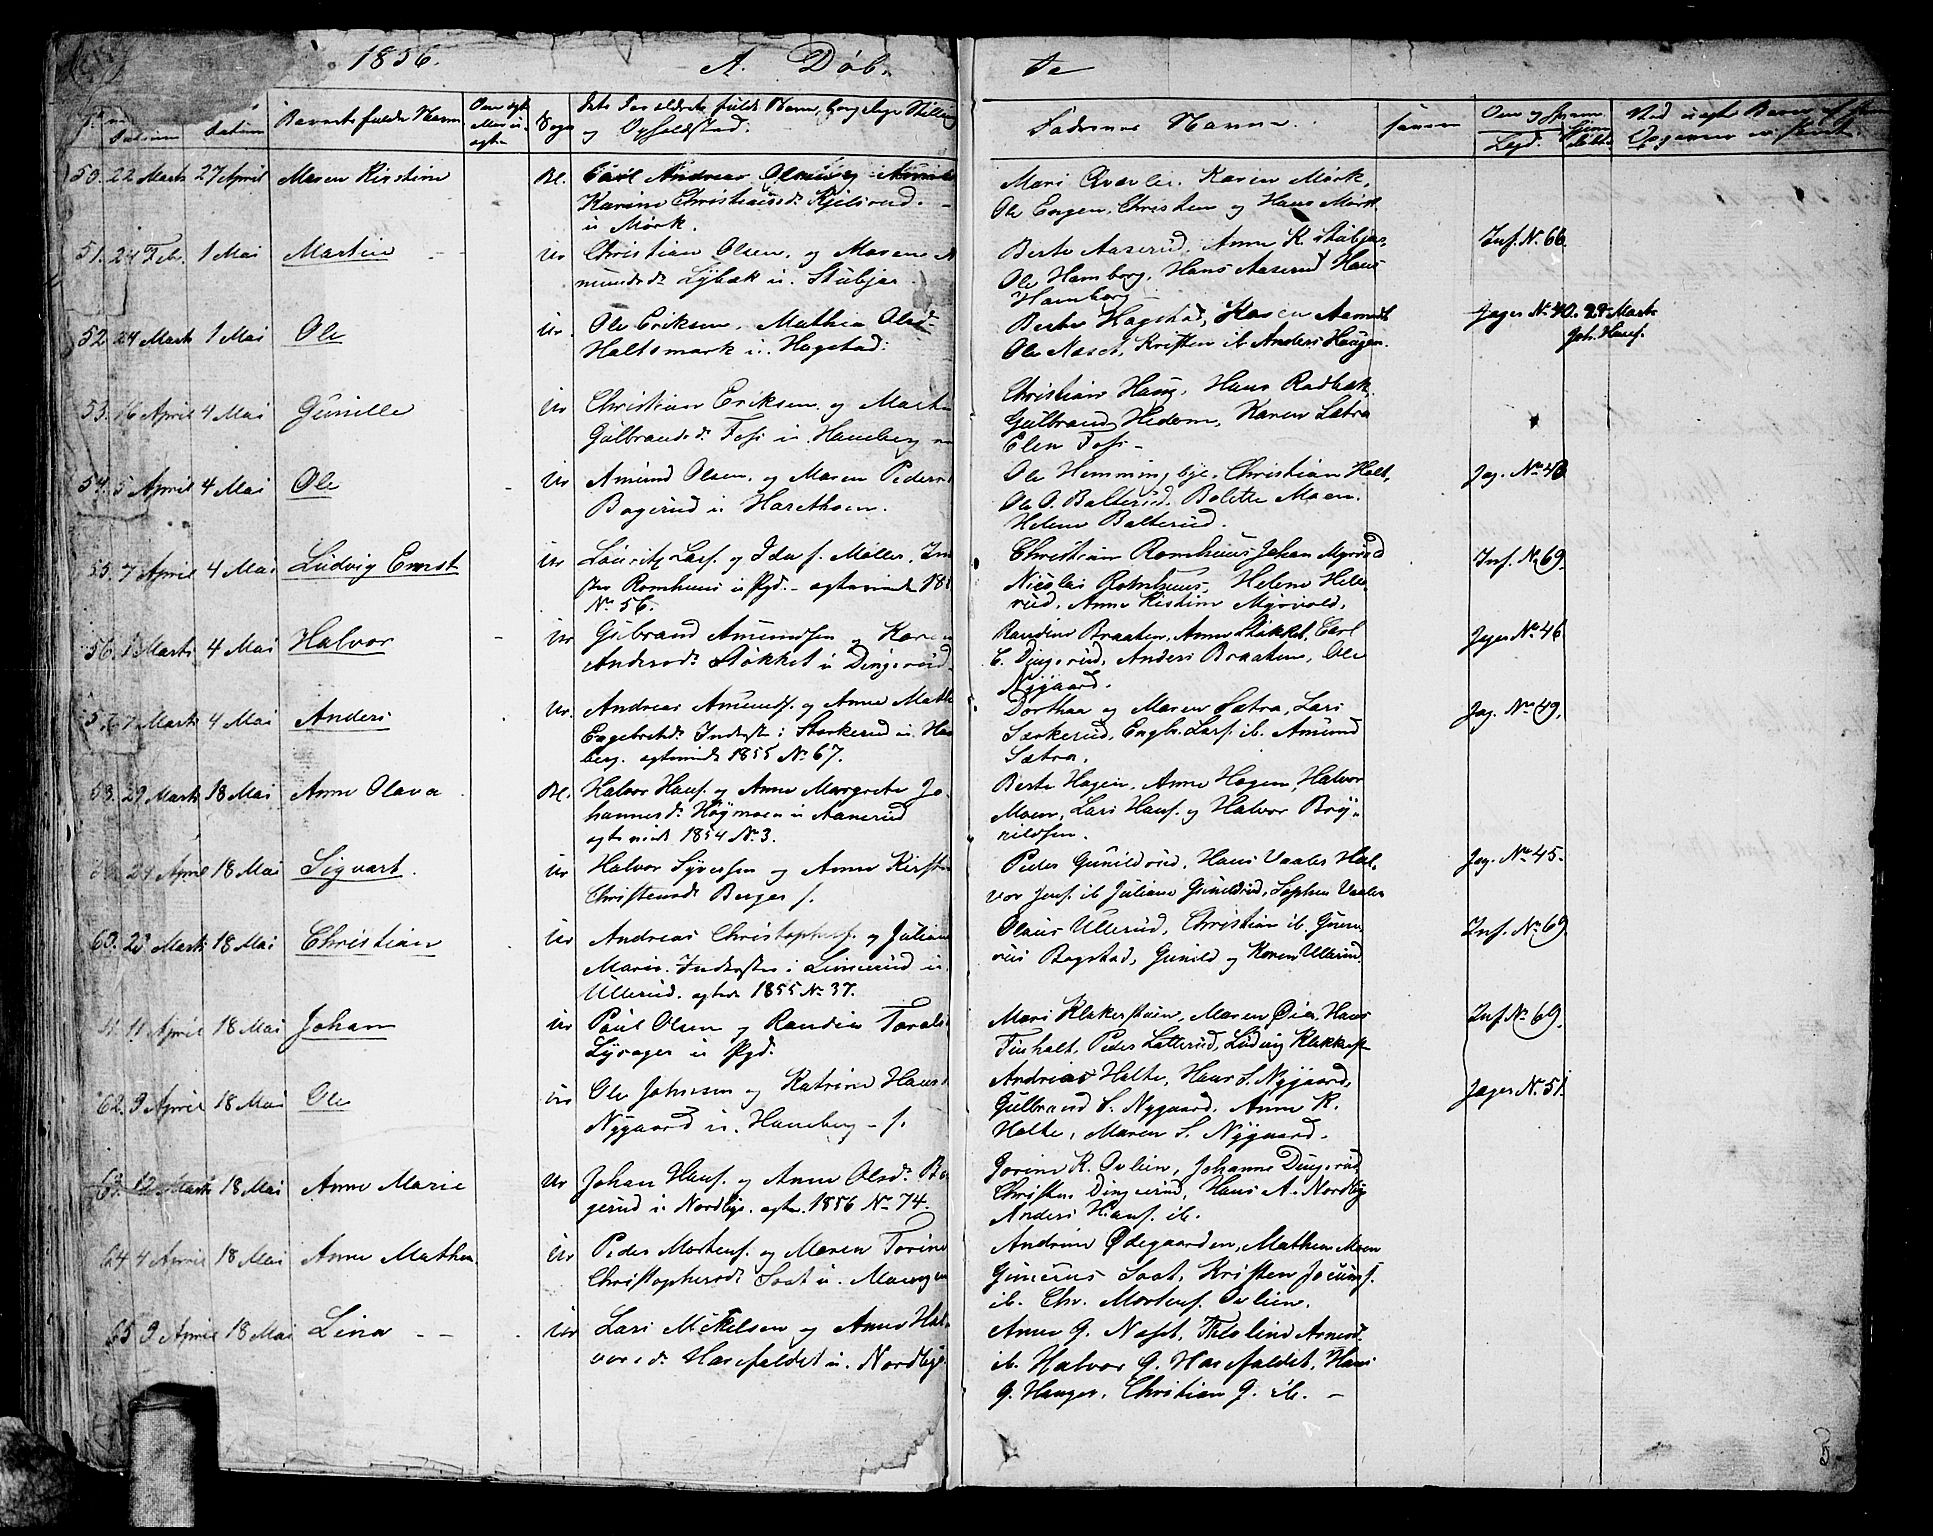 1856. A. Døb- te
Datum Datum Barnets fulde Navn Om ægte Sogn dets Forældres fulde Navn, Borgerlige Stilling
og Opholdsted.
Faddernes Navne.
Lægd.
50. 22 Marts 27 April Maren Kirstine Bl. Carl Andreas Olsen og
Karine Christiansd. Kjelsrud.
u Mork.
Mari Karen Mørk,
Ole Engen, Christen og Hans Mørk
51. 24 Feb. 1 Mai Martin Ur Christian Olsen, og Maren
mundsd. Lybæk u. Stubjar
Berte Aaserud, Anne K. Stubjar
Ole Hamborg, Hans Aaserud Hans
Hamborg
Inf. N. 66
52 24 Marts 1 Mai Ole Ur. Ole Eriksen, Mathia Olsd.
Haltsmark u. Hagstad.
Berte Hagstad, Karen
Ole Næset, Kristen ib. Anders Haugen.
Jager N. 40. 29 Marts
Joh. Hansf.
53. 16 April 4 Mai Gunille Ur Christian Eriksen, og Marth
Gulbrandsd. Foss u. Haneberg
Christian Haug, Hans Rødbæk
Gulbrand Hedem, Karen Sætra
Elen Foss
54. 5 April 4 Mai Ole Ur Amund Olsen, og Maren Peders
Bogerud u Harethoen.
Ole Hemmingbye, Christian Holt,
Ole O. Balterud, Bolette Moen.
Helene Balterud.
Jag. No 46
55. 7 April 4 Mai Ludvig Ernst Ur Lauritz Larsf. og Ida f. Møller, In
Romhuus u Pgd. - ægteviede 18
No 56.
Christian Romhuus Johan Myrvold
Nicolai Romhuus, Helene Helle
rud, Anne Kistine Myrvold,
Inf. No 69.
56. 1 Marts 4 Mai Halvor Ur Gulbrand Amundsen og Karen
Andersd. Støkket u Dingerud
Randine Braaten, Anne Støkket, Carl
C. Dingerud, Anders Braaten, Ole
Nygaard.
Jager No 46
57. 7 Marts 4 Mai Anders Ur. Andreas Amundsf. og Anne Math
Engebretsd. Inderste i Størkerud u. Ha
berg. ægteviede 1855 No 67.
Dorthea og Maren Sætra, Lars
Størkerud, Engbr. Larsf. ib. Amund
Sætra.
Jag. No 49.
58. 29 Marts 18 Mai Anne Olava Bl. Halvor Hansf. og Anne Margrete Jo
hannesd. Høymoen u Aanerud
ægteviede 1854 No 3.
Berte Hagen, Anne Hagen, Halvor
Moen, Lars Hansf. og Halvor Bryn-
nildsen.
59. 24 April 18 Mai Sigvart. Ur Halvor Syversen og Anne Kirst
Christensd. Berger f.
Peder Gunildrud, Hans Vaaler Hal
vor Jensf. ib Juliane Gunildrud, Sophie Vaaler
Jag. No 45.
60. 23 Marts 18 Mai Christian Ur Andreas Christophersf. og Juliane
Marie. Inderster i Linnerud u
Ullerud. ægtev 1855 No 37.
Olaus Ullerud, Christian ib. Gune-
rius Bogstad, Gunild og Karen Ullerud
Inf. No 69
11 April 18 Mai Johan Ur Paul Olsen og Randine Torals
Lyvager u Pgd.
Mari Klakerstuen, Maren Øien, Hans
Finholt, Peder Latterud, Ludvig Klakkerst
Inf No 69.
62. 9 April 18 Mai Ole Ur Ole Johnsen og Katrine Hans
Nygaard u. Haneberg - f.
Andreas Holte, Hans S. Nygaard,
Gulbrand S. Nygaard. Anne K.
Holte, Maren S. Nygaard.
Jager N. 51.
63. 12 Marts 18 Mai Anne Marie Ur Johan Hansf. og Anne Olsd. Bo
gerud u. Nordbye. ægtev. 1856 No 74.
Jorine K. Ovlien, Johanne Dingerud
Christen Dingerud, Hans A. Nordby
Anders Hansf. ib.
64 4 April 18 Mai Anne Mathea. Ur Peder Mortensf. og Maren Torine
Christophersd. Saat u. Mangen
Andrine Ødegaarden, Mathea Moen
Gunerus Saat, Kristen
ib. Chr. Mortensf. Ovlien.
65 9 April 18 Mai Lina Ur Lars Mikkelsen og Anne Hal-
vorsd. Harefaldet u. Nordbye.
Anne G. Næset, Theoline
ib. Halvor G. Harefaldet, Hans
G. Hanger, Christian G. ib.